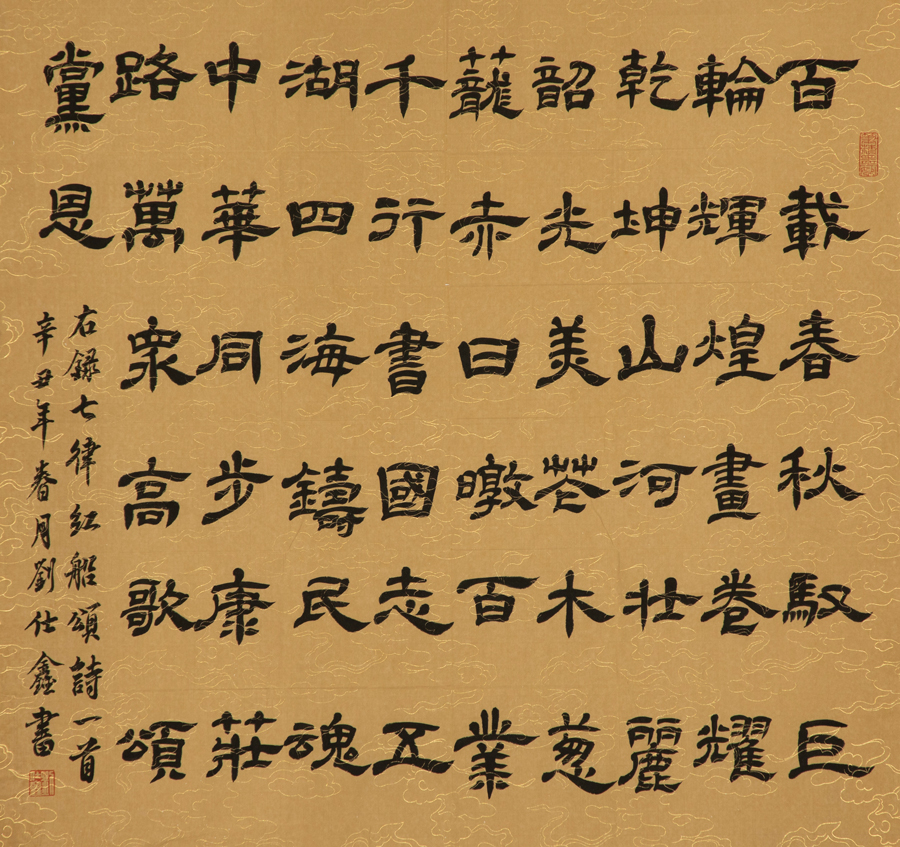 百載春秋馭巨
輪輝煌畫卷耀
乾坤山河壯麗
韶光美花木葱
蘢赤日暾百業
千行書國志五
湖四海鑄民魂
中華同步康莊
路萬眾高歌頌
黨恩
右錄七律紅船頌詩一首
辛丑年春月劉仕鑫書